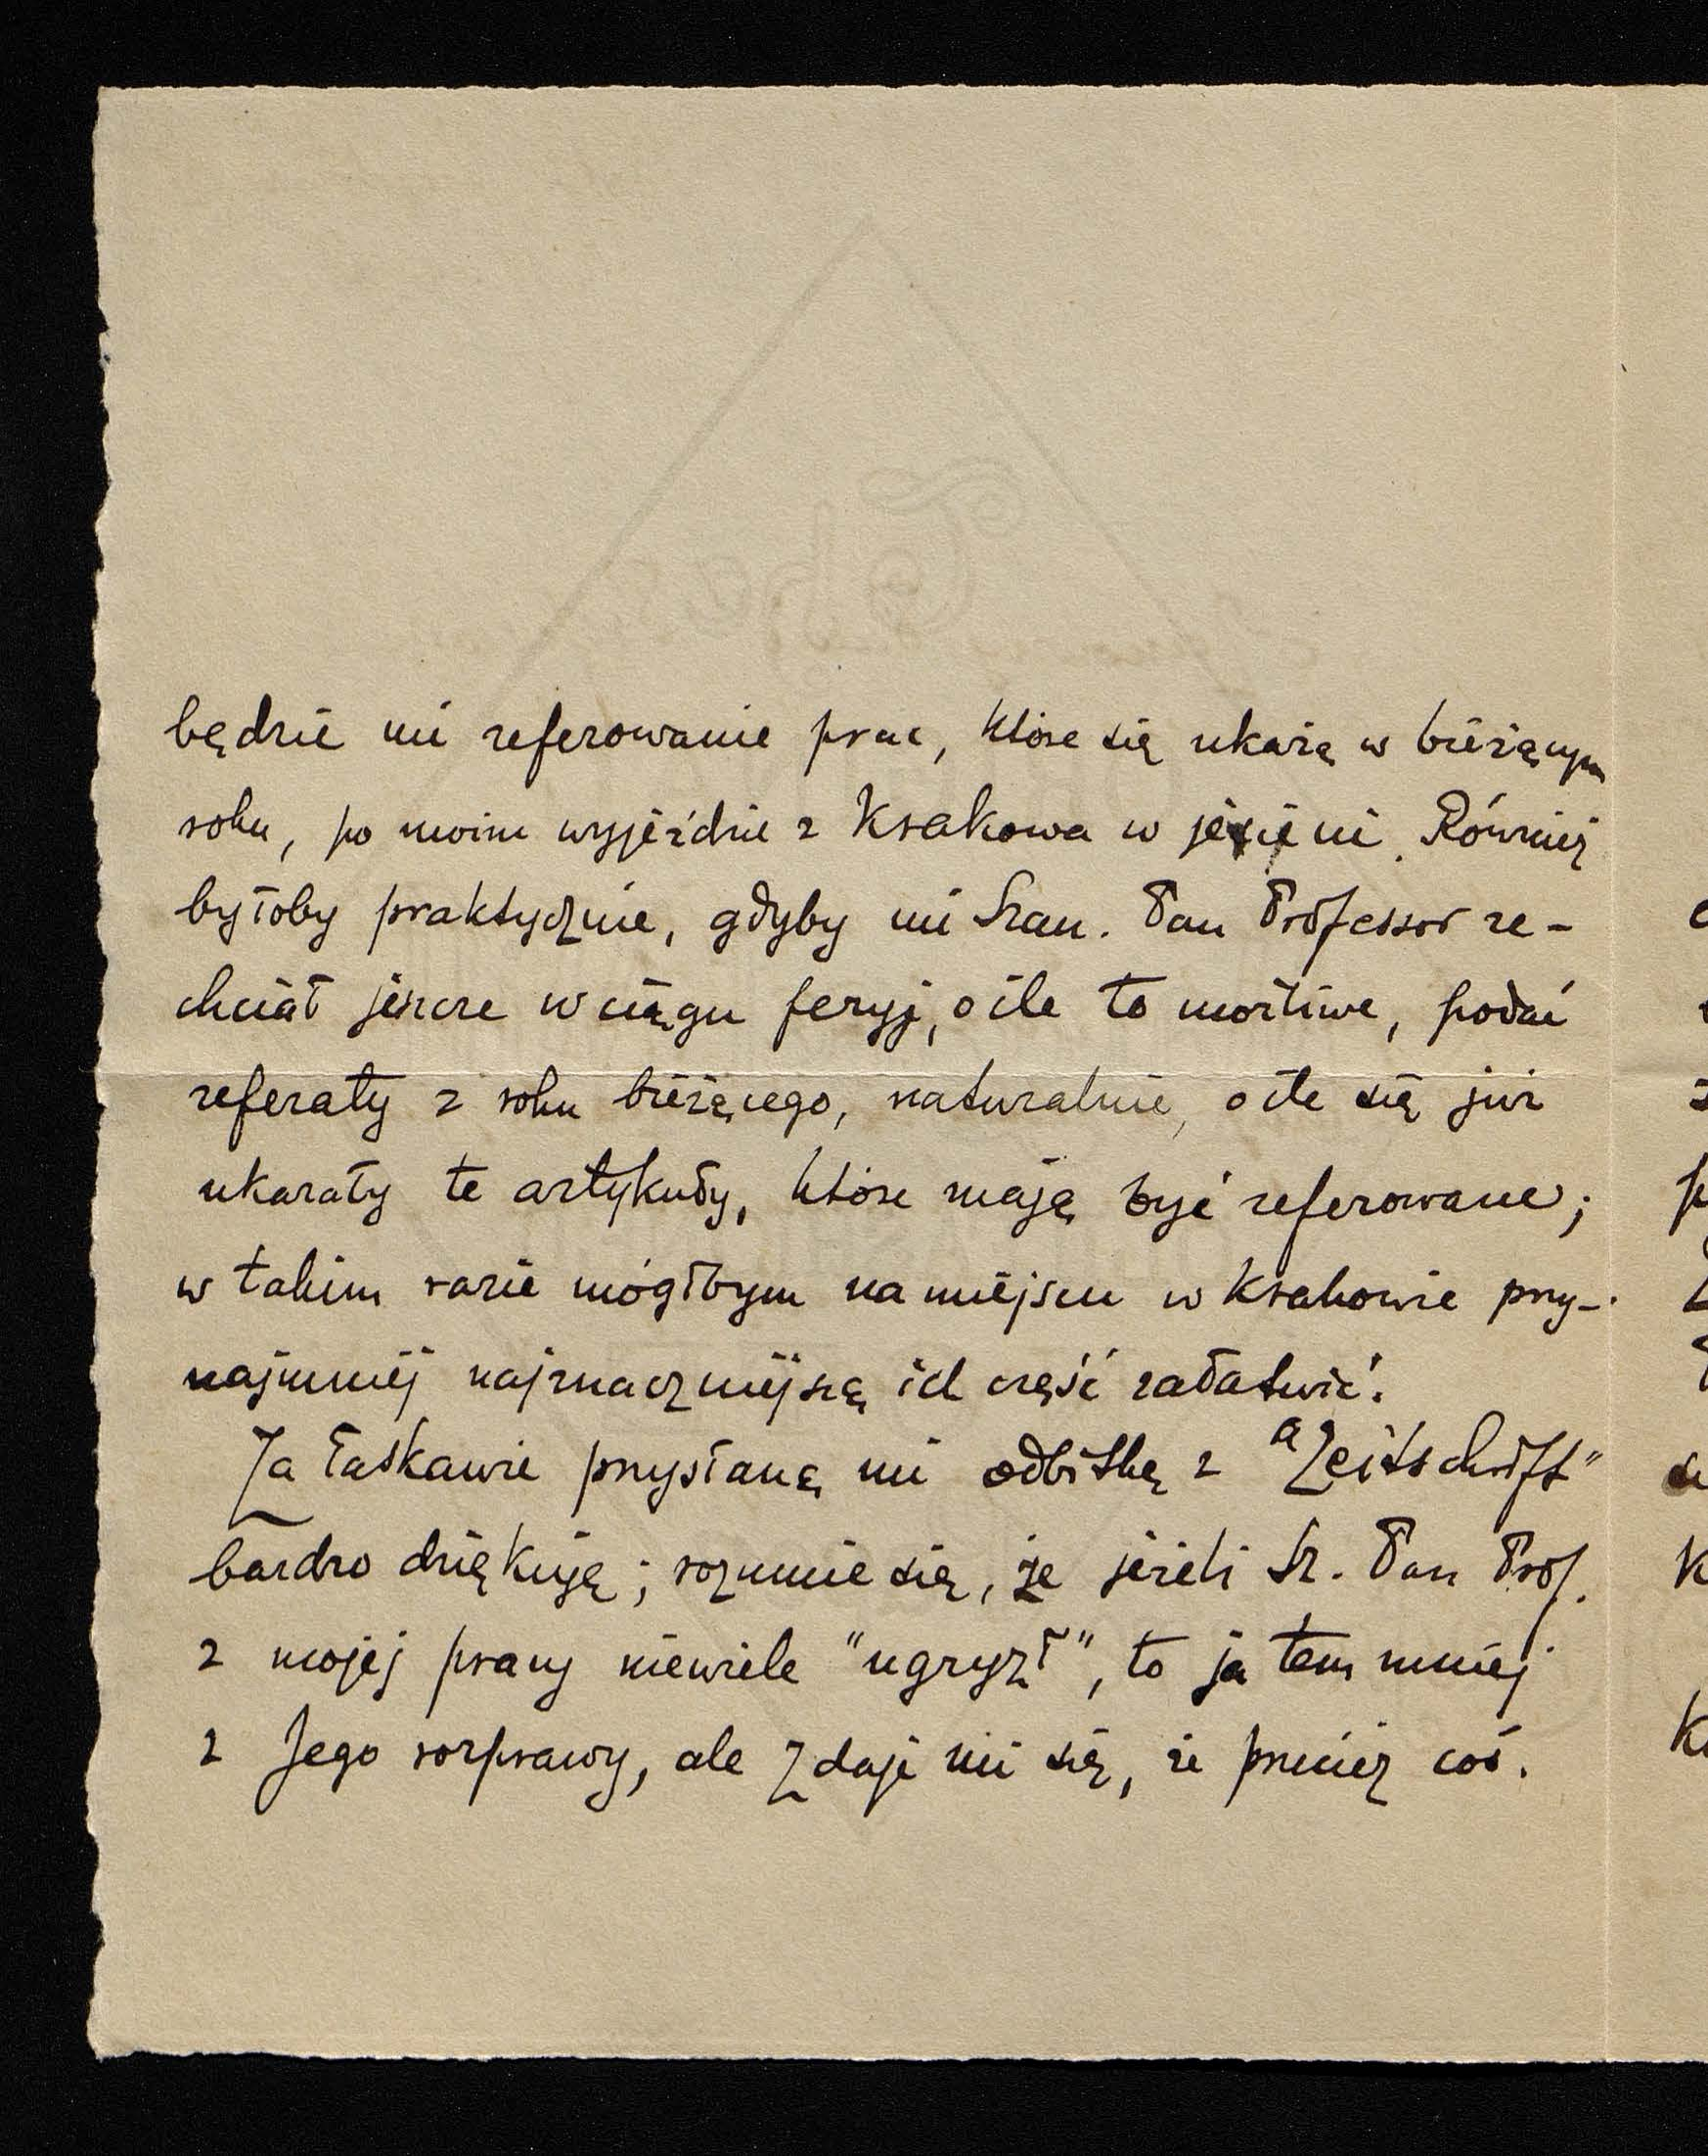 będzie mi referowanie prac, które się ukażą w bieżącym
roku, po moim wyjeździe z Krakowa w jesieni. Również
byłoby praktycznie, gdyby mi Szan. Pan Professor ze-
chciał jeszcze w ciągu feryj, o ile to możliwe, podać
referaty z roku bieżącego, naturalnie, o ile się już
ukazały te artykuły, które mają być referowane;
w takim razie mógłbym na miejscu w Krakowie przy-
najmniej najznaczniejszą ich część załatwić.
Za łaskawie przysłaną mi odbitkę z "Zeitschrift"
bardzo dziękuję; rozumie się, że jeżeli Sz. Pan Prof.
z mojej pracy niewiele "ugryzł", to ja tem mniej
z Jego rozprawy, ale zdaje mi się, że przecież coś.